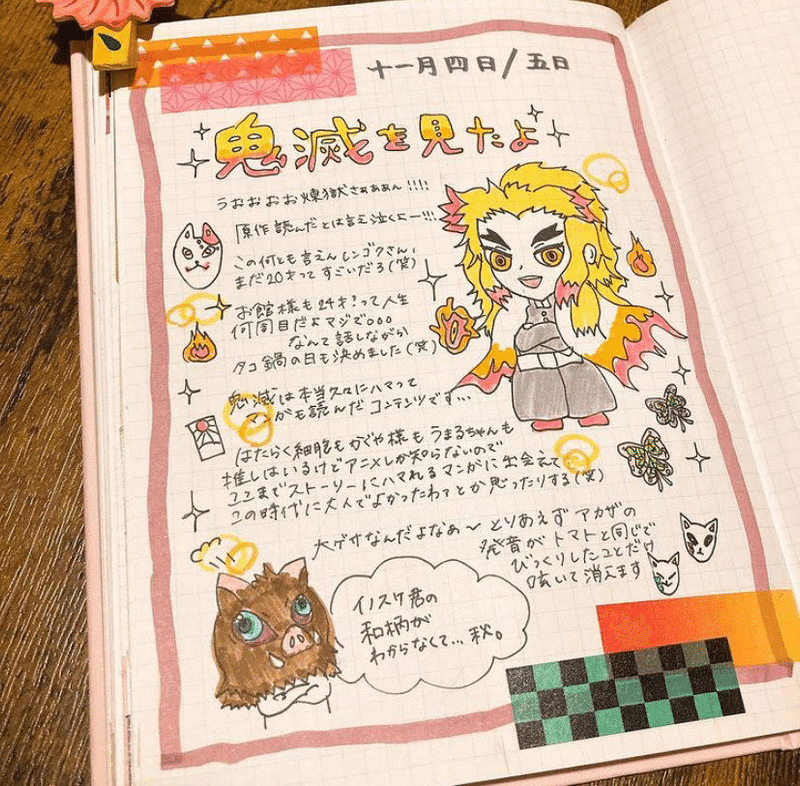 十一月四日/五日
鬼滅を見たよ
うおおおお煉獄さぁぁぁん!!!!
原作読んだとは言え泣くよー!!!
この何とも言えんレンゴクさん、
まだ20才ってすごいだろ(笑)
お館様も24才?って人生
何周目だよマジで○○○
なんて話しながら
タコ鍋の日も決めました(笑)
鬼滅は本当久々にハマって
マンガも読んだコンテンツです…
はたらく細胞もかぐや様もうまるちゃんも
推しはいるけどアニメしか知らないので
ここまでストーリーにハマれるマンガに出会えて
この時代に大人でよかったわァとか思ったりする(笑)
大ゲサなんだよなぁ〜
とりあえずアカザの
発音がトマトと同じで
びっくりしたことだけ
呟いて消えます
イノスケ君の
和柄が
わからなくて…秋。